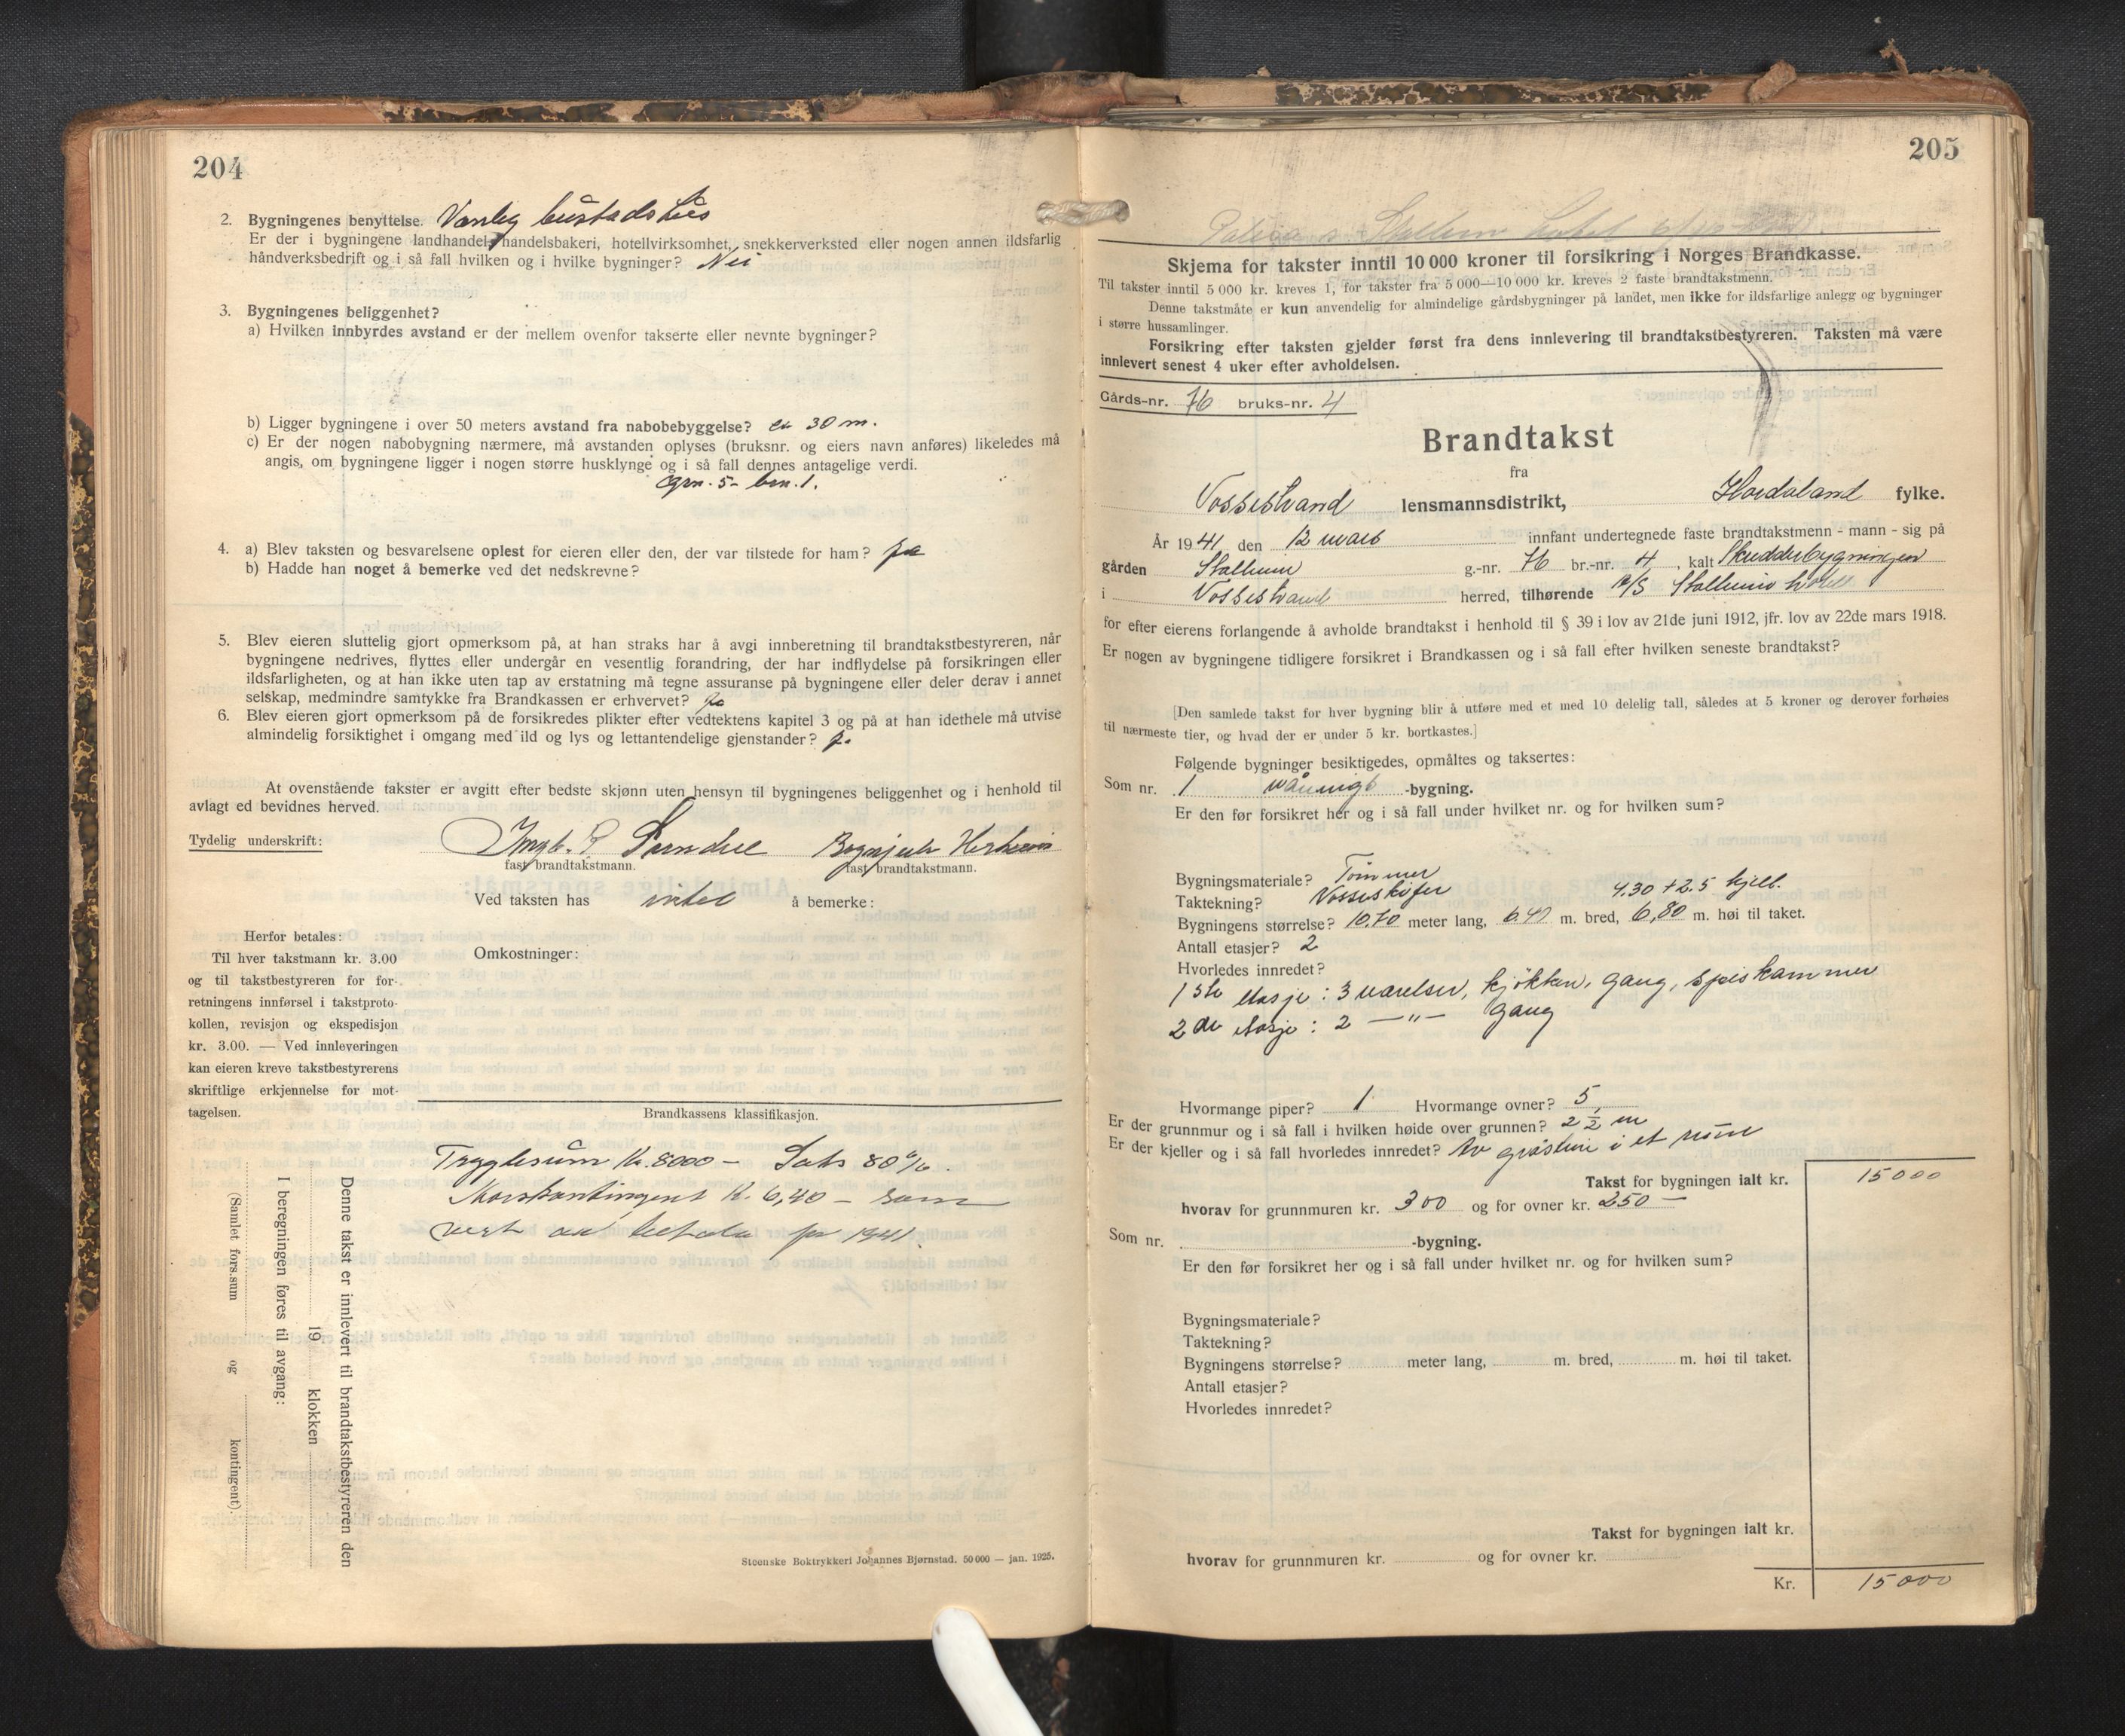 204
2. Bygningenes benyttelse. Vanleg bustadshus
Er der i bygningene landhandel, handelsbakeri, hotellvirksomhet, snekkerverksted eller nogen annen ildsfarlig
håndverksbedrift og i så fall hvilken og i hvilke bygninger? Nei
3. Bygningenes beliggenhet?
a) Hvilken innbyrdes avstand er der mellem ovenfor takserte eller nevnte bygninger?
b) Ligger bygningene i over 50 meters avstand fra nabobebyggelse? ca 30 m.
c) Er der nogen nabobygning nærmere, må avstanden oplyses (bruksnr. og eiers navn anføres) likeledes må
angis, om bygningene ligger i nogen større husklynge og i så fall dennes antagelige verdi.
grn. 5 - brn. 1.
4. a) Blev taksten og besvarelsene oplest for eieren eller den, der var tilstede for ham? ja
b) Hadde han noget å bemerke ved det nedskrevne?
5. Blev eieren sluttelig gjort opmerksom på, at han straks har å avgi innberetning til brandtakstbestyreren, når
bygningene nedrives, flyttes eller undergår en vesentlig forandring, der har indflydelse på forsikringen eller
ildsfarligheten, og at han ikke uten tap av erstatning må tegne assuranse på bygningene eller deler derav i annet
selskap, medmindre samtykke fra Brandkassen er erhvervet? ja
6. Blev eieren gjort opmerksom på de forsikredes plikter efter vedtektens kapitel 3 og på at han idethele må utvise
almindelig forsiktighet i omgang med ild og lys og lettantendelige gjenstander? ja
At ovenstående takster er avgitt efter bedste skjønn uten hensyn til bygningenes beliggenhet og i henhold til
avlagt ed bevidnes herved.
Tydelig underskrift: Ingb. R
fast brandtakstmann. fast brandtakstmann.
Ved taksten has intet å bemerke:
Herfor betales:
Til hver takstmann kr. 3.00
og til takstbestyreren for for-
retningens innførsel i takstproto-
kollen, revisjon og ekspedisjon
kr. 3.00. — Ved innleveringen
kan eieren kreve takstbestyrerens
skriftlige erkjennelse for mot-
tagelsen.
Omkostninger:
Brandkassens klassifikasjon.
Trygdesum Kr. 8000 - Sats 80%.
Årskontingent Kr. 6,40 - som
vert å betala for 1941.
Denne takst er innlevert til brandtakstbestyreren den
19 klokken
I beregningen føres til avgang:
(Samlet fors.sum og kontingent).
Steenske Boktrykkeri Johannes Bjørnstad. 50 000 — jan. 1925.
205
Stalheim hotel
Skjema for takster inntil 10 000 kroner til forsikring i Norges Brandkasse.
Til takster inntil 5 000 kr. kreves 1, for takster fra 5 000—10 000 kr. kreves 2 faste brandtakstmenn.
Denne takstmåte er kun anvendelig for almindelige gårdsbygninger på landet, men ikke for ildsfarlige anlegg og bygninger
i større hussamlinger.
Forsikring efter taksten gjelder først fra dens innlevering til brandtakstbestyreren. Taksten må være
innlevert senest 4 uker efter avholdelsen.
Gårds-nr. 76 bruks-nr. 4
Brandtakst
fra
Vossestrand lensmannsdistrikt, Hordaland fylke.
År 1941 den 12 mars innfant undertegnede faste brandtakstmenn - mann - sig på
gården Stalheim g.-nr. 76 br.-nr. 4, kalt Skredderbygningen
i Vossestrand herred, tilhørende A/S Stalheim hotell
for efter eierens forlangende å avholde brandtakst i henhold til § 39 i lov av 21de juni 1912, jfr. lov av 22de mars 1918.
Er nogen av bygningene tidligere forsikret i Brandkassen og i så fall efter hvilken seneste brandtakst?
[Den samlede takst for hver bygning blir å utføre med et med 10 delelig tall, således at 5 kroner og derover forhøies
til nærmeste tier, og hvad der er under 5 kr. bortkastes.]
Følgende bygninger besiktigedes, opmåltes og taksertes:
Som nr. 1 våningt -bygning.
Er den før forsikret her og i så fall under hvilket nr. og for hvilken sum?
Bygningsmateriale? Tømmer
Taktekning? Vosseskifer 4.30 + 2.5 kjell.
Bygningens størrelse? 10.70 meter lang, 6.40 m. bred, 6,80 m. høi til taket.
Antall etasjer? 2
Hvorledes innredet?
1ste etasje: 3 værelser, kjøkken, gang, spiskammer
2de etasje: 2 —"— gang
Hvormange piper? 1 Hvormange ovner? 5
Er der grunnmur og i så fall i hvilken høide over grunnen? 2 1/2 m
Er der kjeller og i så fall hvorledes innredet? Av gråstein i et rum
Takst for bygningen ialt kr. 15000
hvorav for grunnmuren kr. 300 og for ovner kr. 250 —
Som nr. -bygning.
Er den før forsikret her og i så fall under hvilket nr. og for hvilken sum?
Bygningsmateriale?
Taktekning?
Bygningens størrelse? meter lang, m. bred, m. høi til taket.
Antall etasjer?
Hvorledes innredet?
Takst for bygningen ialt kr.
hvorav for grunnmuren kr. og for ovner kr.
Kr. 15000